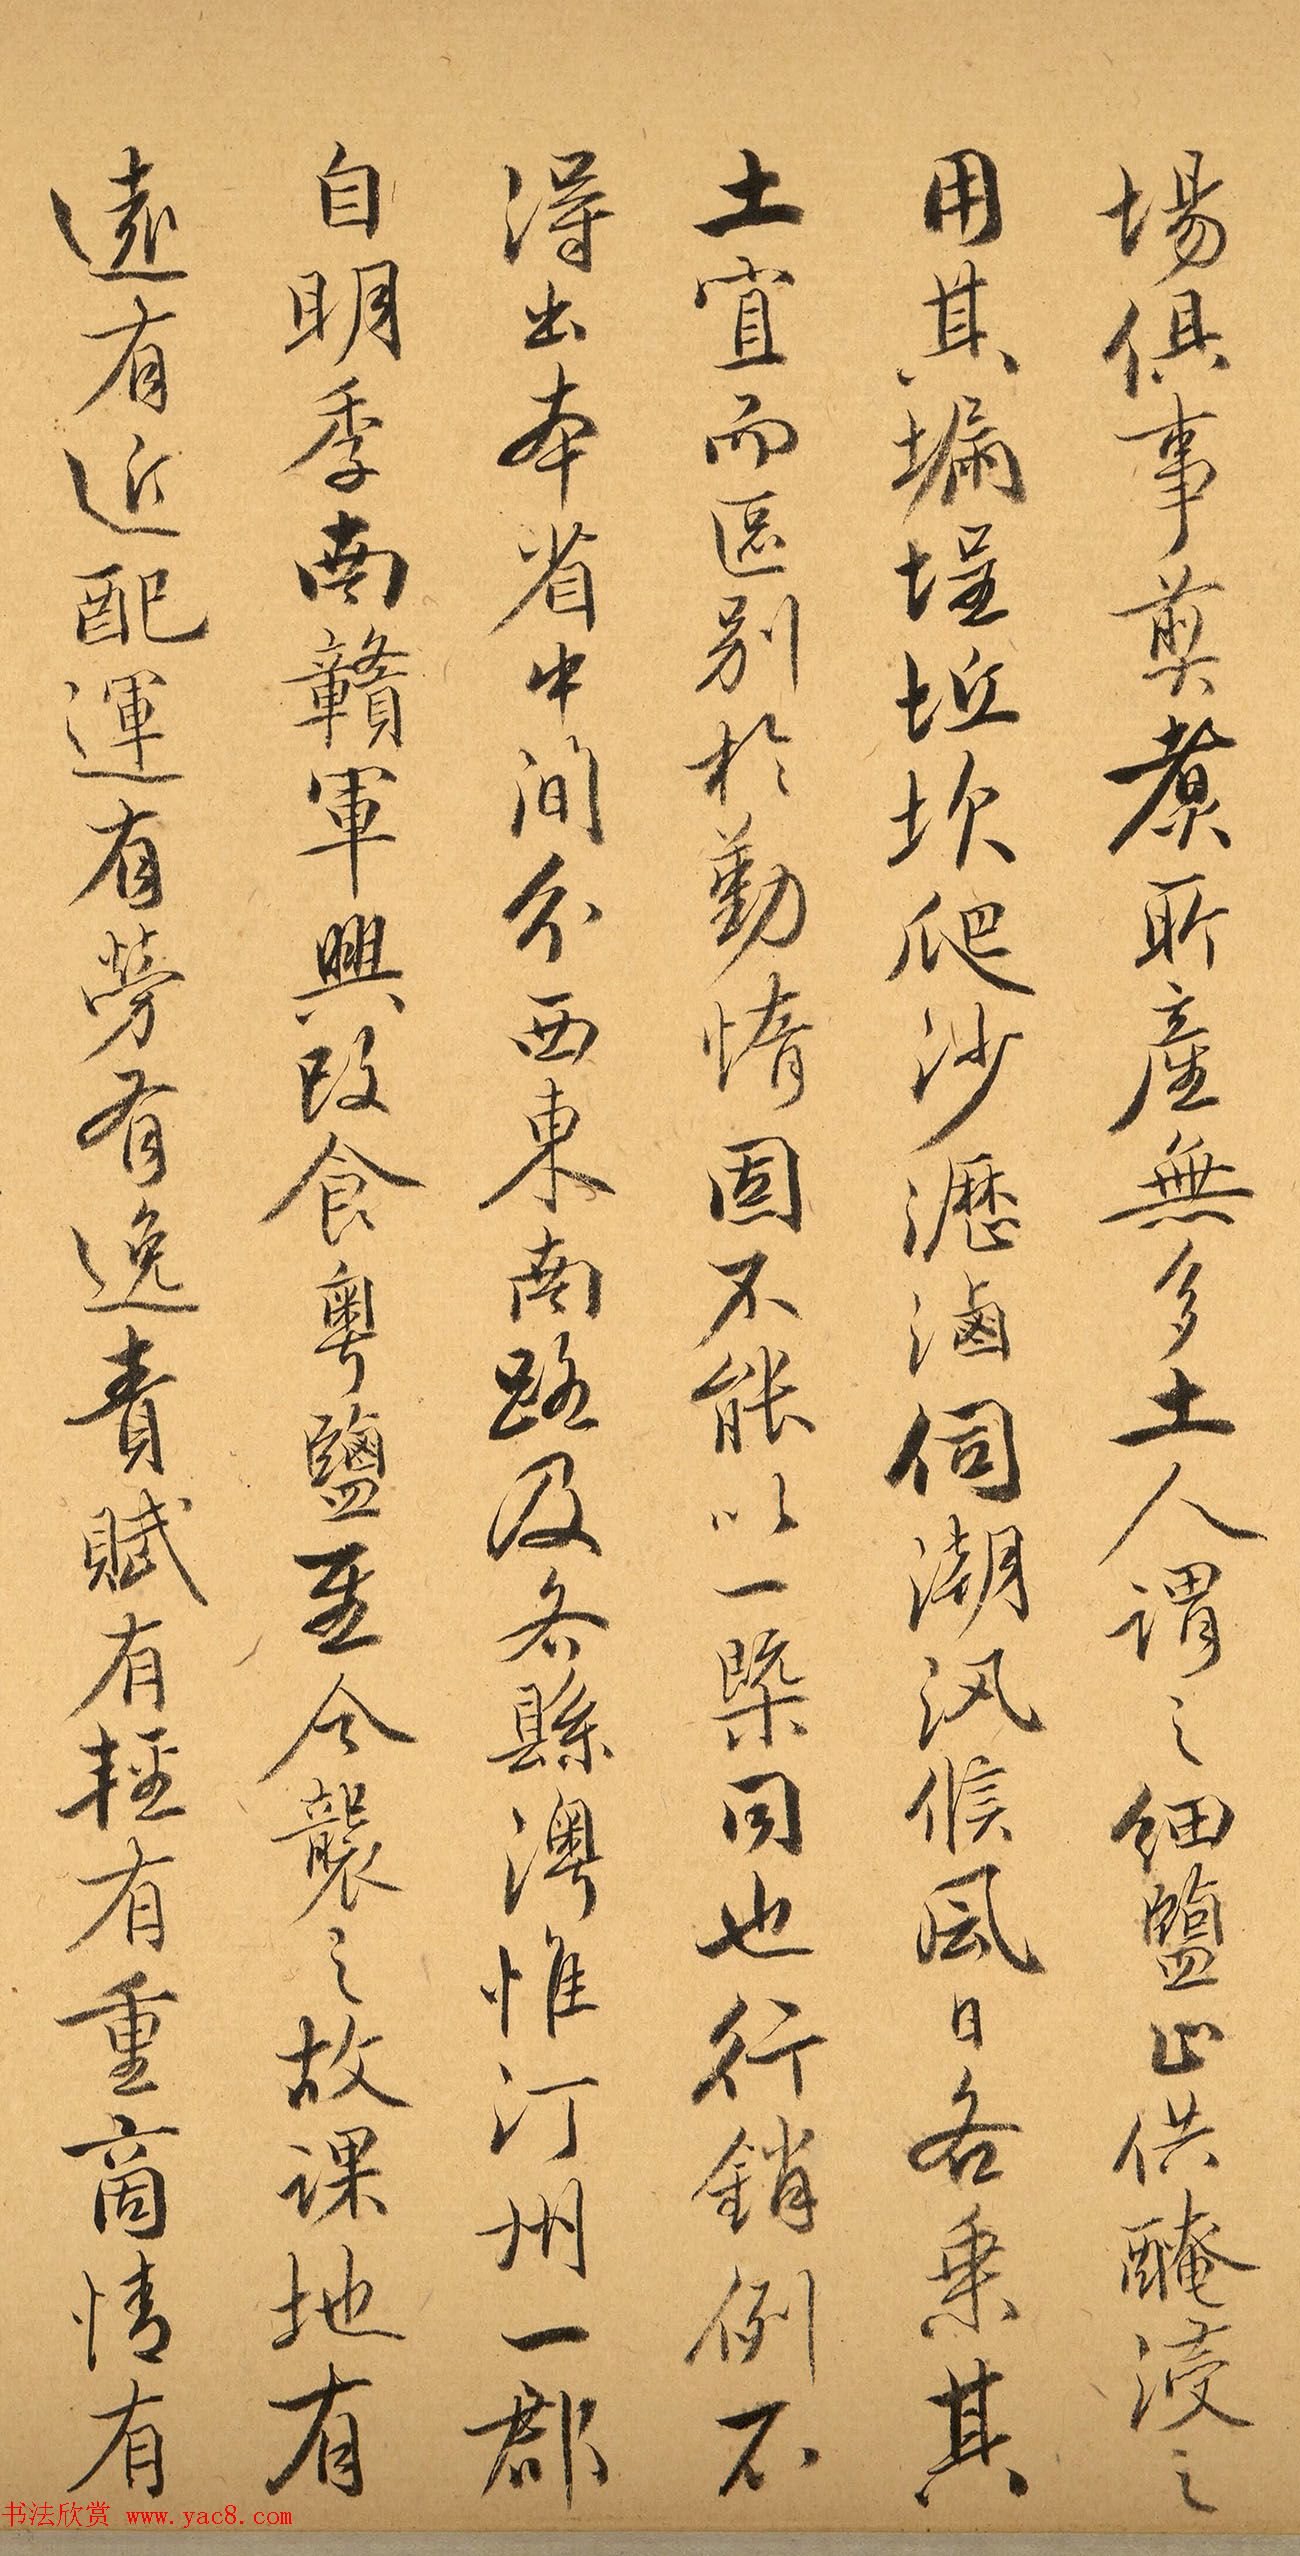 場俱事煎煑所產無多土人謂之細鹽止供醃浸之
用其埽埕坵坎爬沙瀝滷伺潮汛候風日各乘其
土宜而區別於勤惰固不能以一槩同也行銷例不
得出本省中间分西東南路及各縣澳惟汀州一郡
自明季南贛軍興改食粵鹽至今襲之故課地有
遠有近配運有勞有逸責賦有輕有重商情有
书法欣赏 www.yac8.com